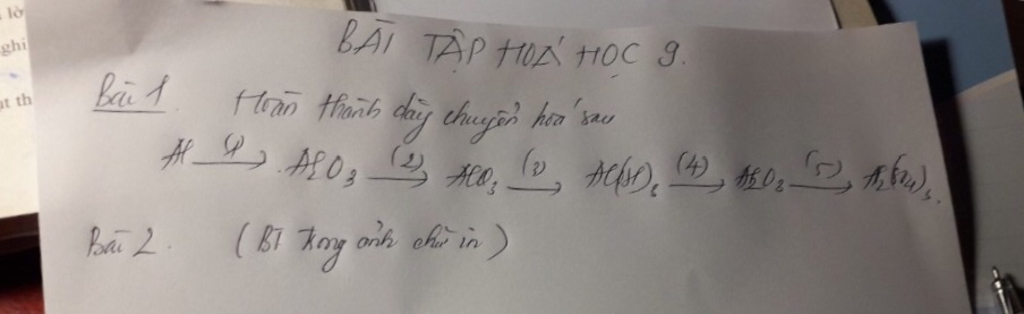 lờ
ghi
ut th
BÀI TẬP HOÁ HỌC 9.
Bài 1. Hoàn thành dãy chuyển hoá sau
Al (1)→ Al2O3 (2)→ AlCl3 (3)→ Al(OH)3 (4)→ Al2O3 (5)→ Al2(SO4)3.
Bài 2. (BT trong ảnh chữ in)